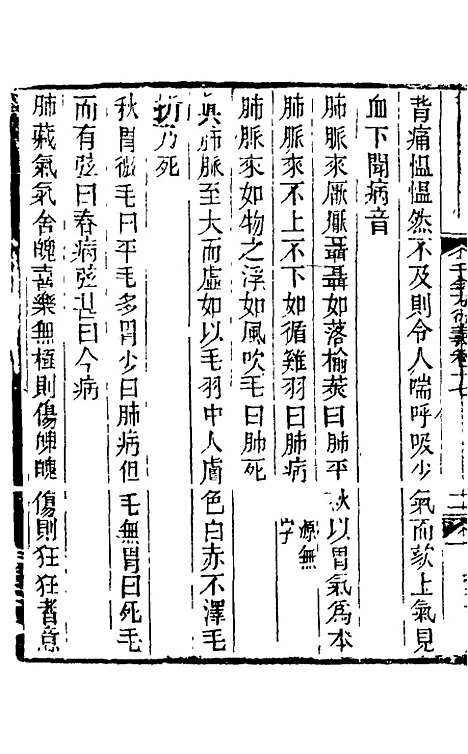 背痛慍慍然不及則令人喘呼吸少氣而欬上氣見
血下聞病音
肺脈來厭厭聶聶如落榆莢曰肺平秋以胃氣為本
肺脈來不上不下如循雞羽曰肺病
肺脈來如物之浮如風吹毛曰肺死
真肺脈至大而虛如以毛羽中人膚色白赤不澤毛
折乃死
秋胃微毛曰平毛多胃少曰肺病但毛無胃曰死毛
而有弦曰春病弦甚曰今病
肺藏氣氣舍魄喜樂無極則傷魄魄傷則狂狂者意